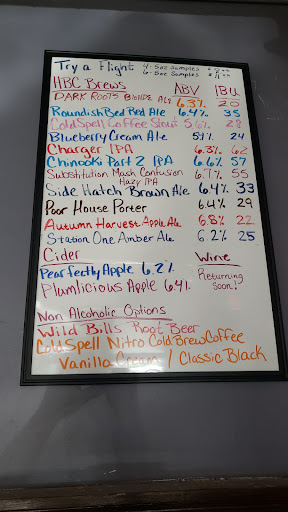 Try a Flight 4- 5oz Samples
6- 5oz Samples
HBC Brews ABV IBU
DARK ROOTS Blonde Ale 6.3% 20
Roundish Bed Red Ale 6.4% 35
ColdSpell Coffee Stout 5.6% 28
Blueberry Cream Ale 5.4% 24
Charger IPA 6.3% 62
Chinook Part 2 IPA 6.6% 57
Substitution Mash Confusion Hazy IPA 6.7% 55
Side Hatch Brown Ale 6.4% 33
Poor House Porter 6.4% 29
Autumn Harvest Apple Ale 6.8% 22
Station One Amber Ale 6.2% 25
Cider Wine
Pearfectly Apple 6.2% Returning
Plumlicious Apple 6.4% Soon!
Non Alcoholic Options
Wild Bills Root Beer
ColdSpell Nitro Cold Brew Coffee
Vanilla Cream / Classic Black